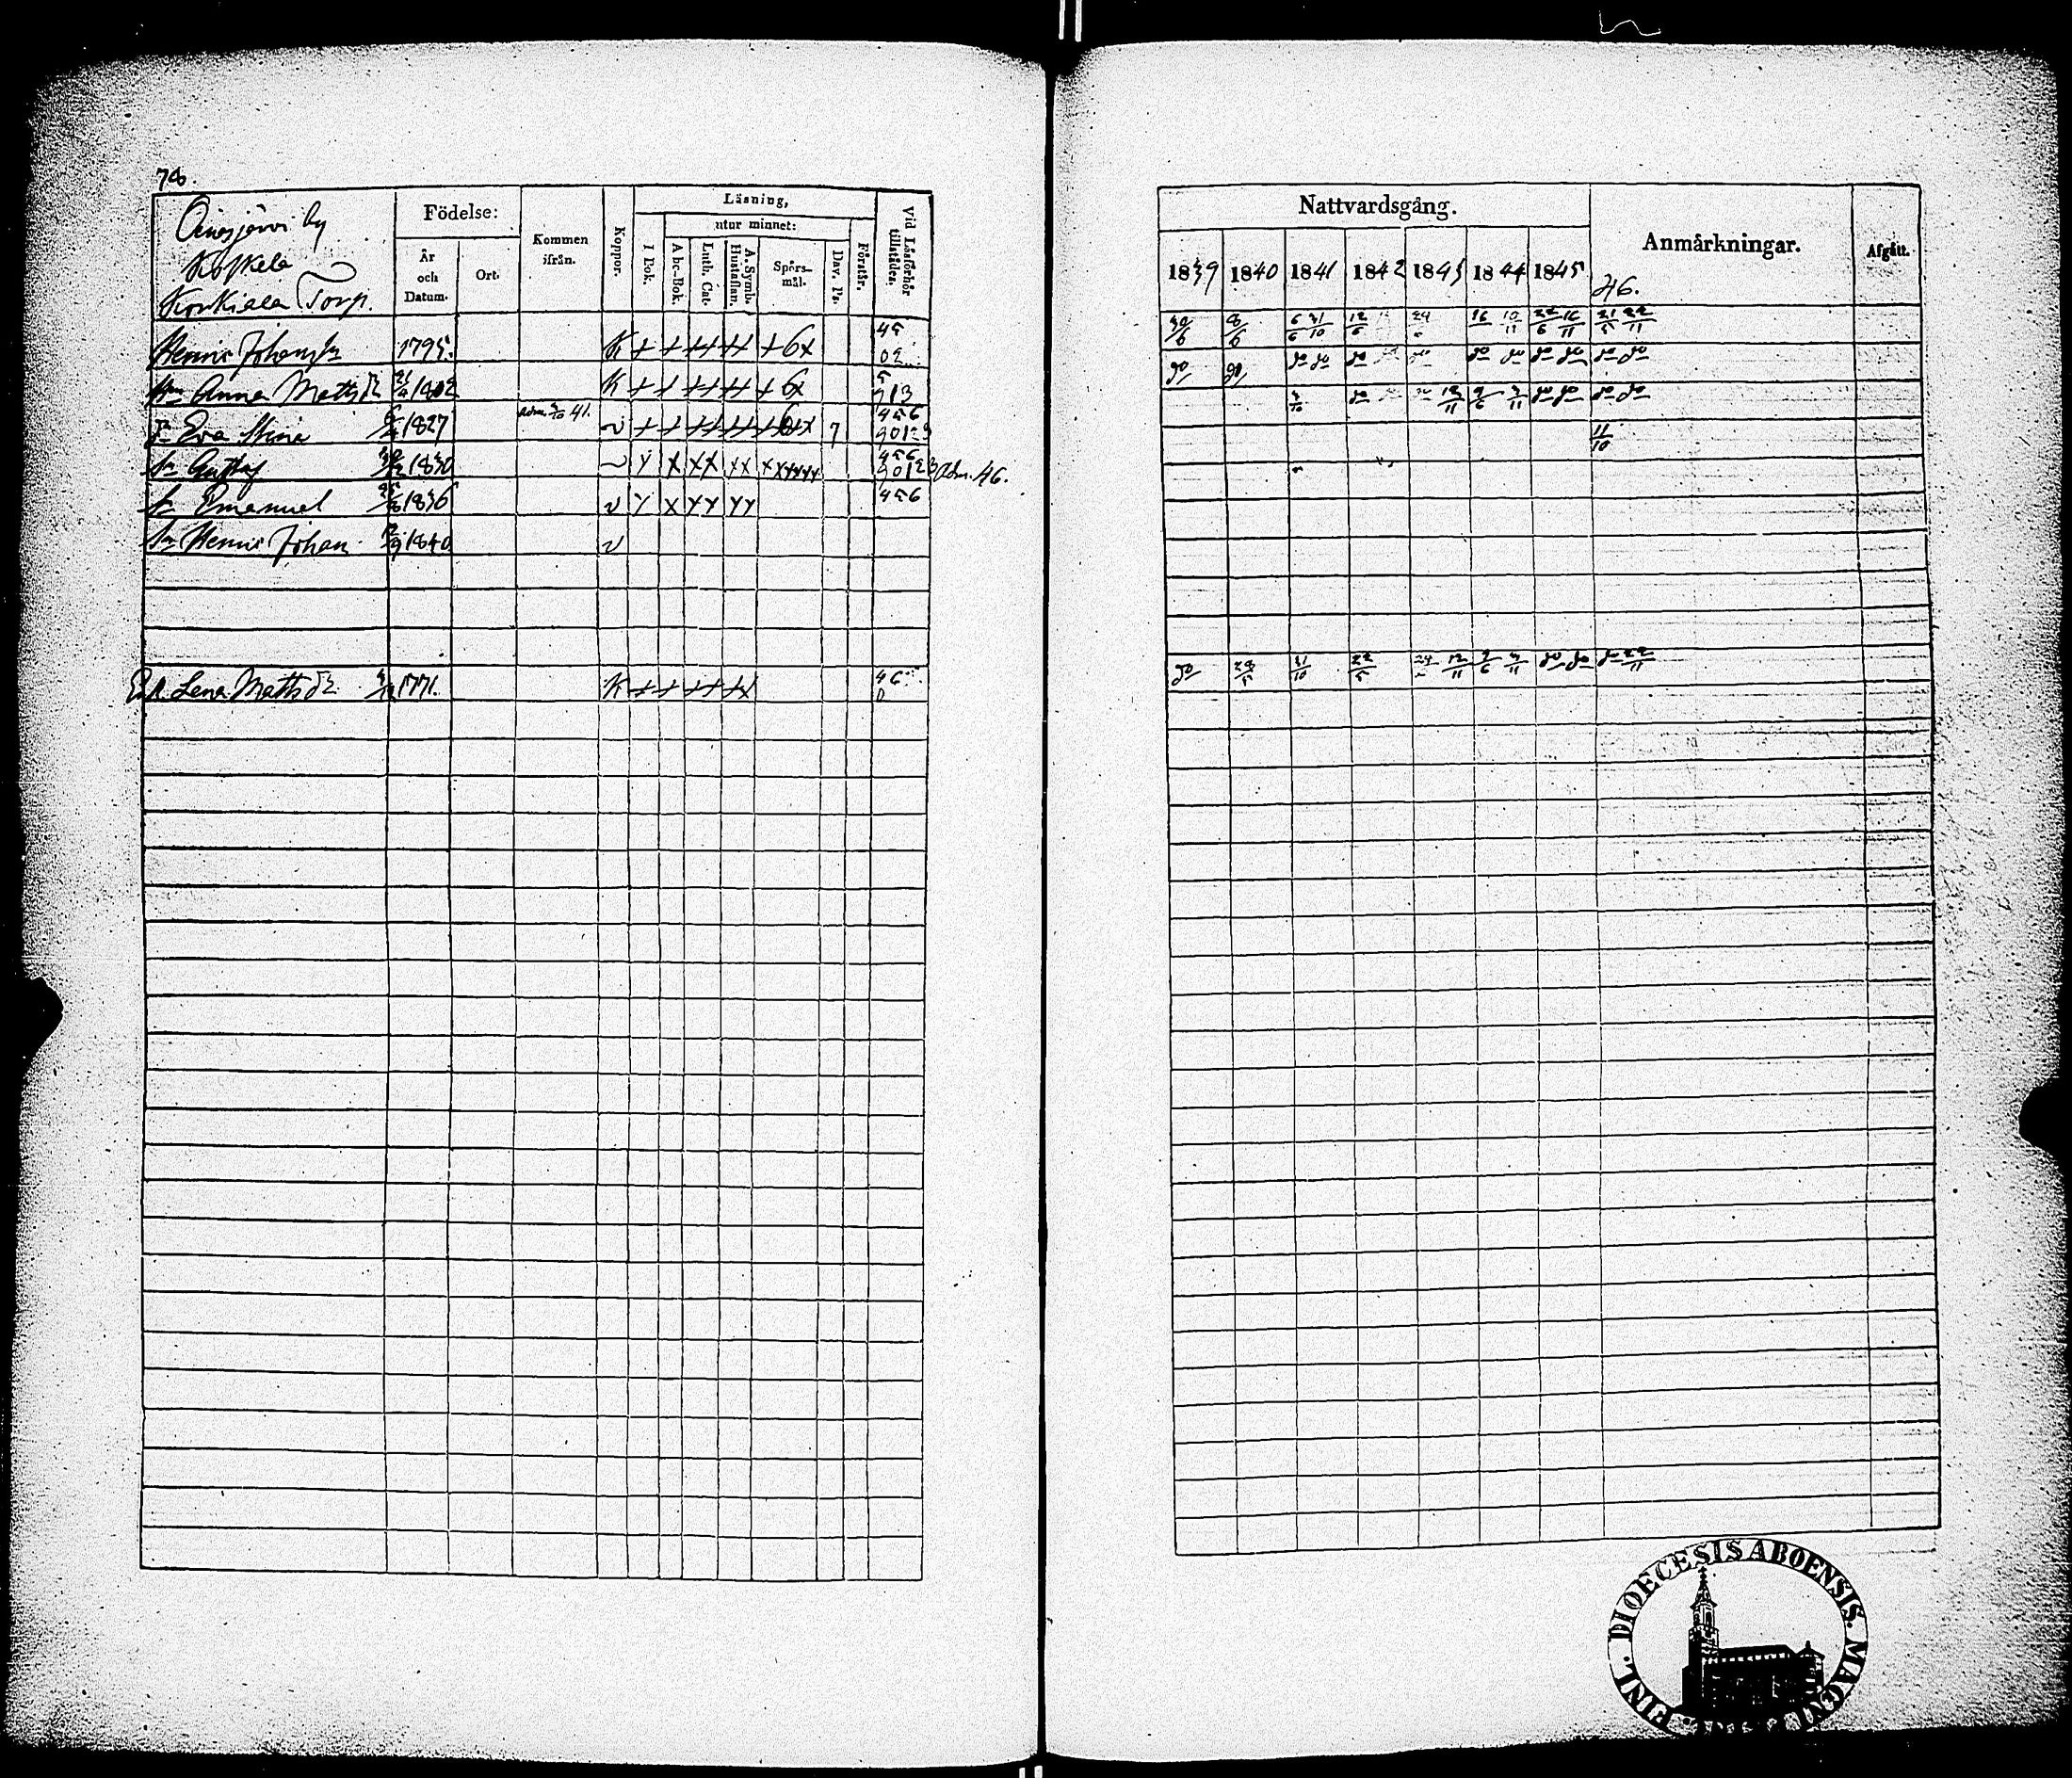 78.
Oinasjärvi by
Koskela
Korkiala Torp.
Födelse:
År och Datum.
Ort.
Kommen ifrån.
Koppor.
Läsning,
I Bok.
utur minnet:
Abc-Bok.
Luth. Cat.
A. Symb. Hustaflan.
Spörs-mål.
Dav. Ps.
Förstår.
Vid Läsförhör tillstädes.
Henric Johansson 1795. K + + ++ ++ +6x 45 02
Hu Anna Mattsdr 21/4 1802 K + + ++ ++ +6x 5 913
Dr Eva Stina 1827 Adm. 3/10 41. v + + ++ ++ 7 456 90123
Sn Gustaf 1830 v Y x xx xx 456 90123 Adm. 46.
Sn Emanuel 1836 v Y x YY YY 456
Sn Henric Johan 1840 v
Enk. Lena Mattsdr 1771. K + + ++ +x 46 0
Nattvardsgång.
1839 1840 1841 1842 1843 1844 1845
46.
Anmärkningar.
Afgått.
30/6 8/6 6/6 31/10 12/6 24 16 10/11 22/6 16/11 21/5 22/11
do do do do do do do do do do do do
3/10 do 12/11 9/6 3/11 do do do do
11/10
do 28/5 31/10 22/5 24 12/11 9/6 3/11 do do do 22/11
DIOECESIS ABOENSIS. MAGNI
FINL.